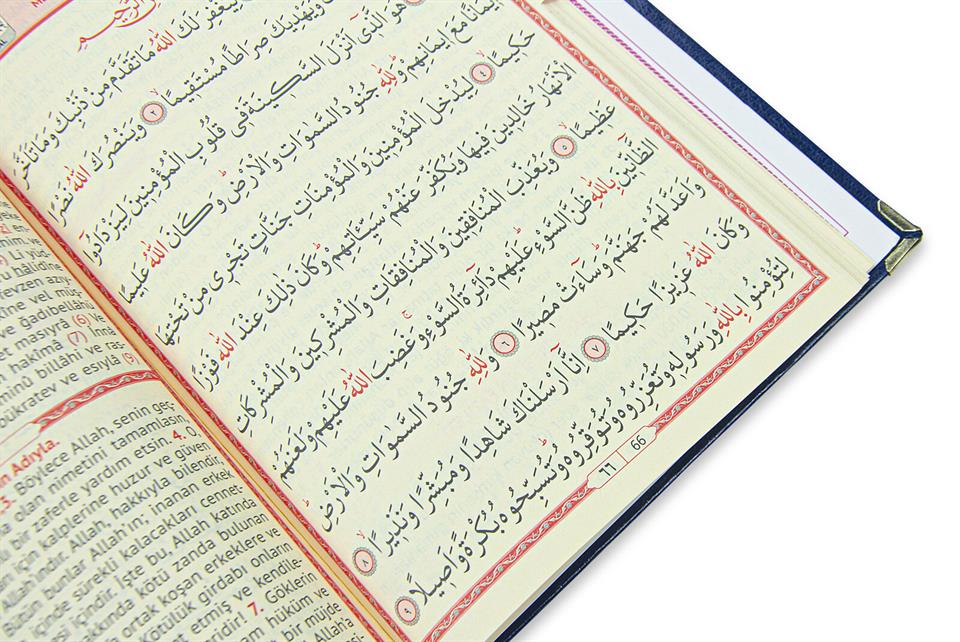 الرَّحِيمِ
يَغْفِرَ لَكَ اللّٰهُ مَا تَقَدَّمَ مِنْ ذَنْبِكَ وَمَا تَاَخَّرَ
وَيَهْدِيَكَ صِرَاطًا مُسْتَقِيمًا ۙ ﴿٢﴾ وَيَنْصُرَكَ اللّٰهُ نَصْرًا
هُوَ الَّذ۪ٓي اَنْزَلَ السَّك۪ينَةَ ف۪ي قُلُوبِ الْمُؤْمِن۪ينَ لِيَزْدَادُٓوا
ا۪يمَانًا مَعَ ا۪يمَانِهِمْ وَلِلّٰهِ جُنُودُ السَّمٰوَاتِ وَالْاَرْضِ وَكَانَ اللّٰهُ عَل۪يمًا
حَك۪يمًا ﴿٤﴾ لِيُدْخِلَ الْمُؤْمِن۪ينَ وَالْمُؤْمِنَاتِ جَنَّاتٍ تَجْر۪ي مِنْ تَحْتِهَا
الْاَنْهَارُ خَالِد۪ينَ ف۪يهَا وَيُكَفِّرَ عَنْهُمْ سَيِّـَٔاتِهِمْ وَكَانَ ذٰلِكَ عِنْدَ اللّٰهِ فَوْزًا
عَظ۪يمًا ﴿٥﴾ وَيُعَذِّبَ الْمُنَافِق۪ينَ وَالْمُنَافِقَاتِ وَالْمُشْرِك۪ينَ وَالْمُشْرِكَاتِ
الظَّٓانّ۪ينَ بِاللّٰهِ ظَنَّ السَّوْءِ عَلَيْهِمْ دَٓائِرَةُ السَّوْءِ ۚ وَغَضِبَ اللّٰهُ عَلَيْهِمْ وَلَعَنَهُمْ
وَاَعَدَّ لَهُمْ جَهَنَّمَ وَسَٓاءَتْ مَص۪يرًا ﴿٦﴾ وَلِلّٰهِ جُنُودُ السَّمٰوَاتِ وَالْاَرْضِ
وَكَانَ اللّٰهُ عَز۪يزًا حَك۪يمًا ﴿٧﴾ اِنَّٓا اَرْسَلْنَاكَ شَاهِدًا وَمُبَشِّرًا وَنَذ۪يرًا ﴿٨﴾
لِتُؤْمِنُوا بِاللّٰهِ وَرَسُولِه۪ وَتُعَزِّرُوهُ وَتُوَقِّرُوهُ وَتُسَبِّحُوهُ بُكْرَةً وَاَص۪يلًا ﴿٩﴾
٦٦ | 66
en
nim, ve
Li yud
rü hâlidîne
fevzen azıy
ine vel müş
ve gadıbellâhü
et masıyra (6) Ve
hakîmâ (7) İnnâ
minû billâhi ve ras
bükratev ve esıylâ (9)
n Adıyla.
Böylece Allah, senin geç
a olan nimetini tamamlasın,
lı bir zaferle yardım etsin. 4. O,
in kalplerine huzur ve güven
Allah'ındır. Allah, hakkıyla bilendir,
ütün bunlar Allah'ın; inanan erkek
içinde sürekli kalacakları cennet
si içindir. İşte bu, Allah katında
hakkında kötü zanda bulunan
a ortak koşan erkeklere ve
Kötülük girdabı onların
etmiş ve kendile
eridir! 7. Göklerin
am hüküm ve
bir müjde
Allah'a